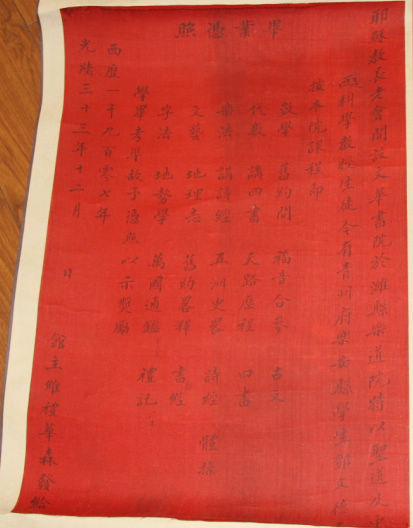 畢業憑照
耶穌教長老會開設文華書院於濰縣樂道院特以聖道
兩科學教授生徒今有青州府樂安縣學生鄧文
按本院課程即
數學 舊約問 福音合參 古文
代數 講四書 天路歷程 四書
樂法 講詩經 五洲史畧 詩經 體操
文藝 地理志 舊約畧釋 書經
字法 地勢學 萬國通鑑 禮記
學畢考畢故予憑照以示獎勵
西歷一千九百零七年
光緒三十三年十二月 日
館主維禮華森發給